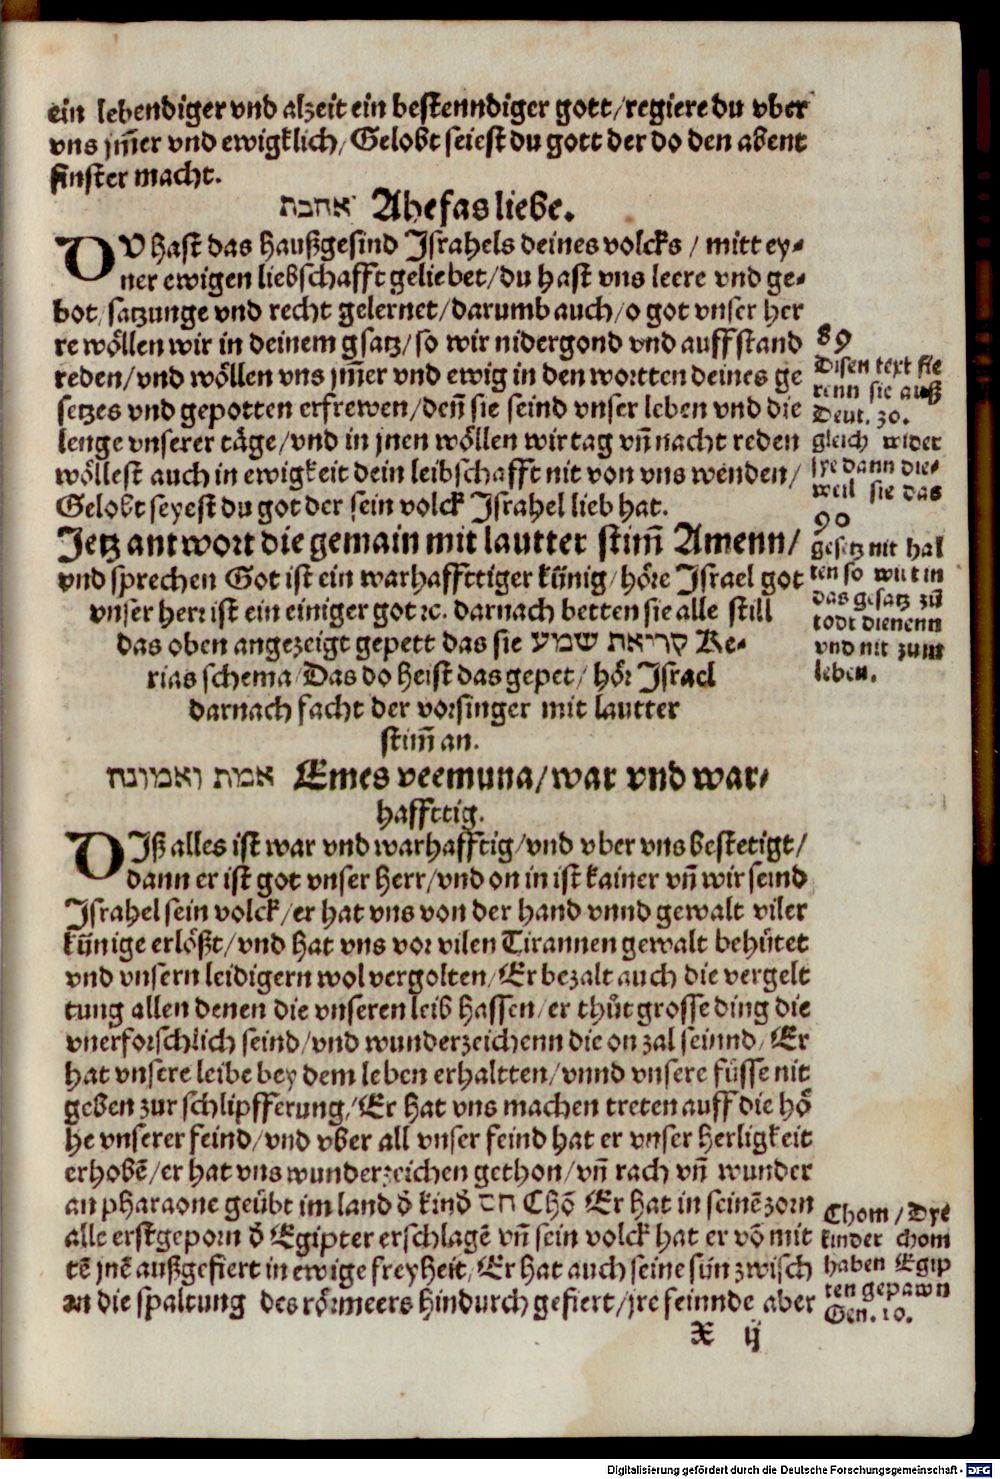 ein lebendiger vnd alzeit ein bestenndiger gott/regiere du vber
vns jm̃er vnd ewigklich/Gelobt seiest du gott der do den abent
finster macht.
אהבת Ahefas liebe.
DV hast das haußgesind Jsrahels deines volcks / mitt ey⸗
ner ewigen liebschafft geliebet/du hast vns leere vnd ge⸗
bot/satzunge vnd recht gelernet/darumb auch/o got vnser her
re wöllen wir in deinem gsatz/so wir nidergond vnd auffstand
reden/vnd wöllen vns jm̃er vnd ewig in den wortten deines ge
setzes vnd gepotten erfrewen/deñ sie seind vnser leben vnd die
lenge vnserer täge/vnd in jnen wöllen wir tag vñ nacht reden
wöllest auch in ewigkeit dein leibschafft nit von vns wenden/
Gelobt seyest du got der sein volck Jsrahel lieb hat.
Jetz antwort die gemain mit lautter stim̃ Amenn/
vnd sprechen Got ist ein warhaffttiger künig/höre Jsrael got
vnser herr ist ein einiger got ꝛc. darnach betten sie alle still
das oben angezeigt gepett das sie קריאת שמע Ke⸗
rias schema/Das do heist das gepet/ hör Jsrael
darnach facht der vorsinger mit lautter
stim̃ an.
אמת ואמונה Emes veemuna/war vnd war⸗
haffttig.
DJß alles ist war vnd warhafftig/vnd vber vns bestetigt/
dann er ist got vnser herr/vnd on in ist kainer vñ wir seind
Jsrahel sein volck/er hat vns von der hand vnnd gewalt viler
künige erlößt/vnd hat vns vor vilen Tirannen gewalt behütet
vnd vnsern leidigern wol vergolten/Er bezalt auch die vergelt
tung allen denen die vnseren leib hassen/er thůt grosse ding die
vnerforschlich seind/vnd wunderzeichenn die on zal seinnd/Er
hat vnsere leibe bey dem leben erhaltten/vnnd vnsere füsse nit
geben zur schlipfferung/Er hat vns machen treten auff die hö
he vnserer feind/vnd vber all vnser feind hat er vnser herligkeit
erhobẽ/er hat vns wunderzeichen gethon/vñ rach vñ wunder
an pharaone geübt im land d̾ kind̾ חם Chõ Er hat in seinẽ zorn
alle erstgeporn d̾ Egipter erschlagẽ vñ sein volck hat er võ mit
tẽ jnẽ außgefiert in ewige freyheit/Er hat auch seine sün zwisch
an die spaltung des rörmeers hindurch gefiert/jre feinnde aber
X ij
89
Disen text fie
renn sie auß
Deut. 30.
gleich wider
sye dann die⸗
weil sie das
90
gesetz nit hal
ten so wirt in
das gesatz zů
todt dienenn
vnd nit zum
leben.
Chom / Dye
kinder chom
haben Egip
ten gepawn
Gen. 10.
Digitalisierung gefördert durch die Deutsche Forschungsgemeinschaft - DFG